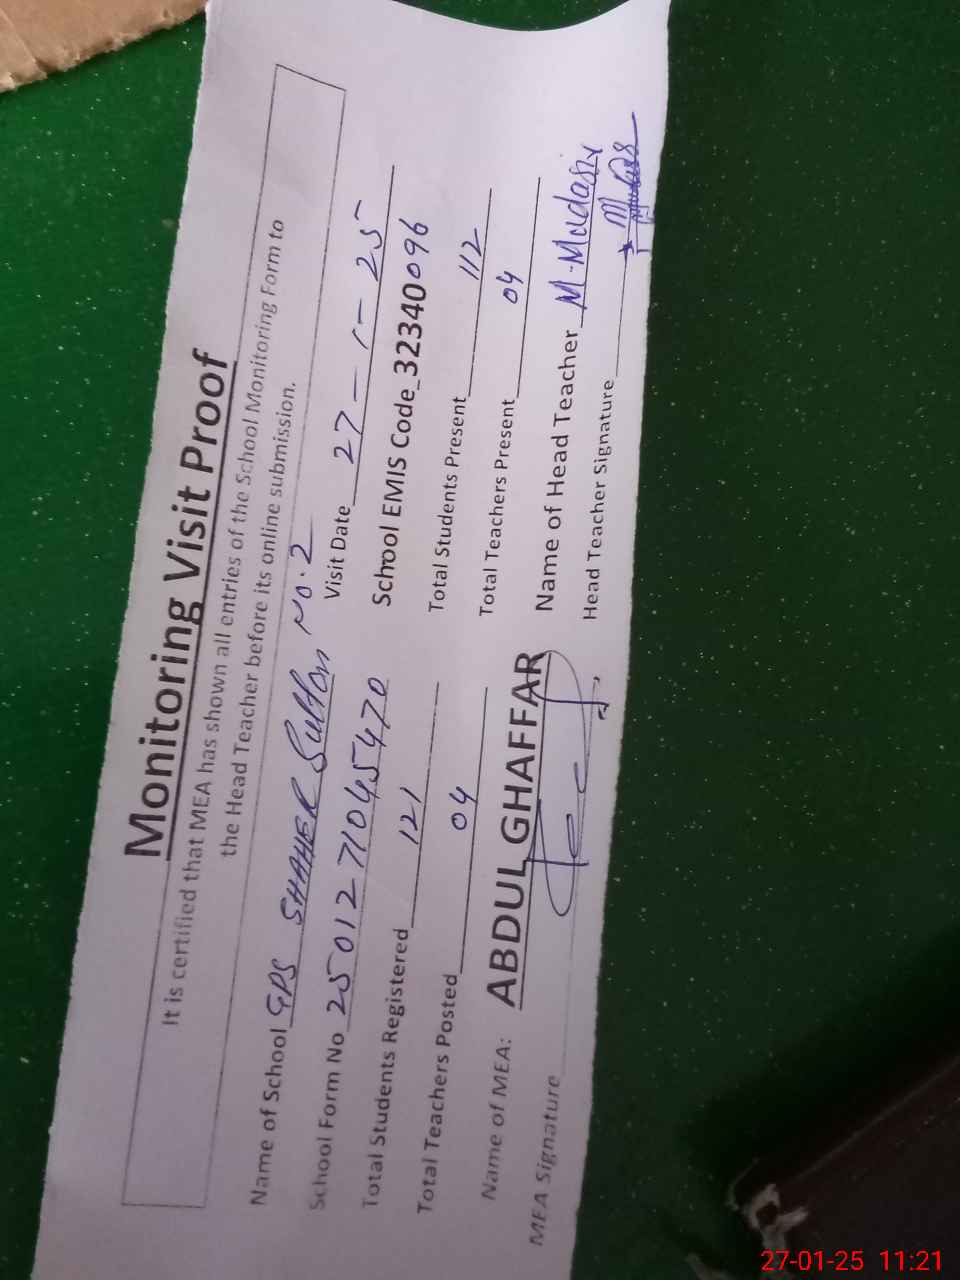 Monitoring Visit Proof
It is certified that MEA has shown all entries of the School Monitoring Form to
the Head Teacher before its online submission.
Name of School GPS SHAHER Sultan No.2
Visit Date 27-1-25
School Form No 25012 71045470
School EMIS Code_32340096
Total Students Registered 121
Total Students Present 112
Total Teachers Posted 04
Total Teachers Present 04
Name of MEA: ABDUL GHAFFAR
Name of Head Teacher M-Mudasir
MEA Signature
Head Teacher Signature
27-01-25 11:21